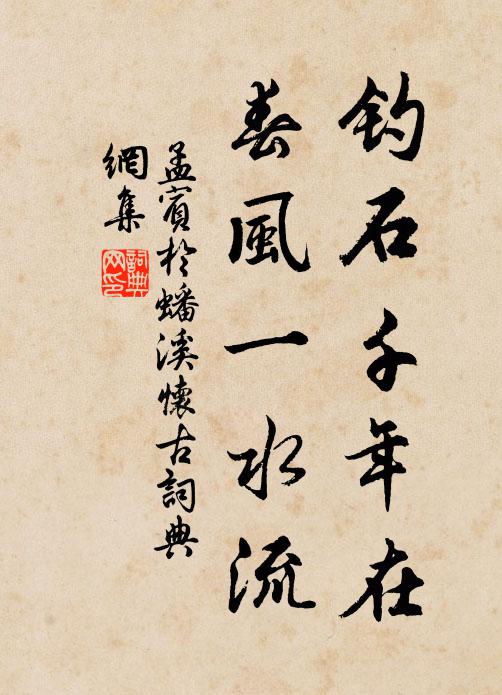 钓石千年在
春風一水流
孟賓於蟠溪懷古詞典
網集
詞典网印